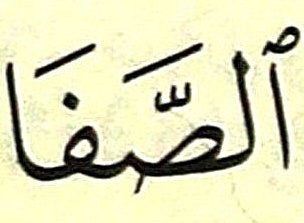 ٱلصَّفَا